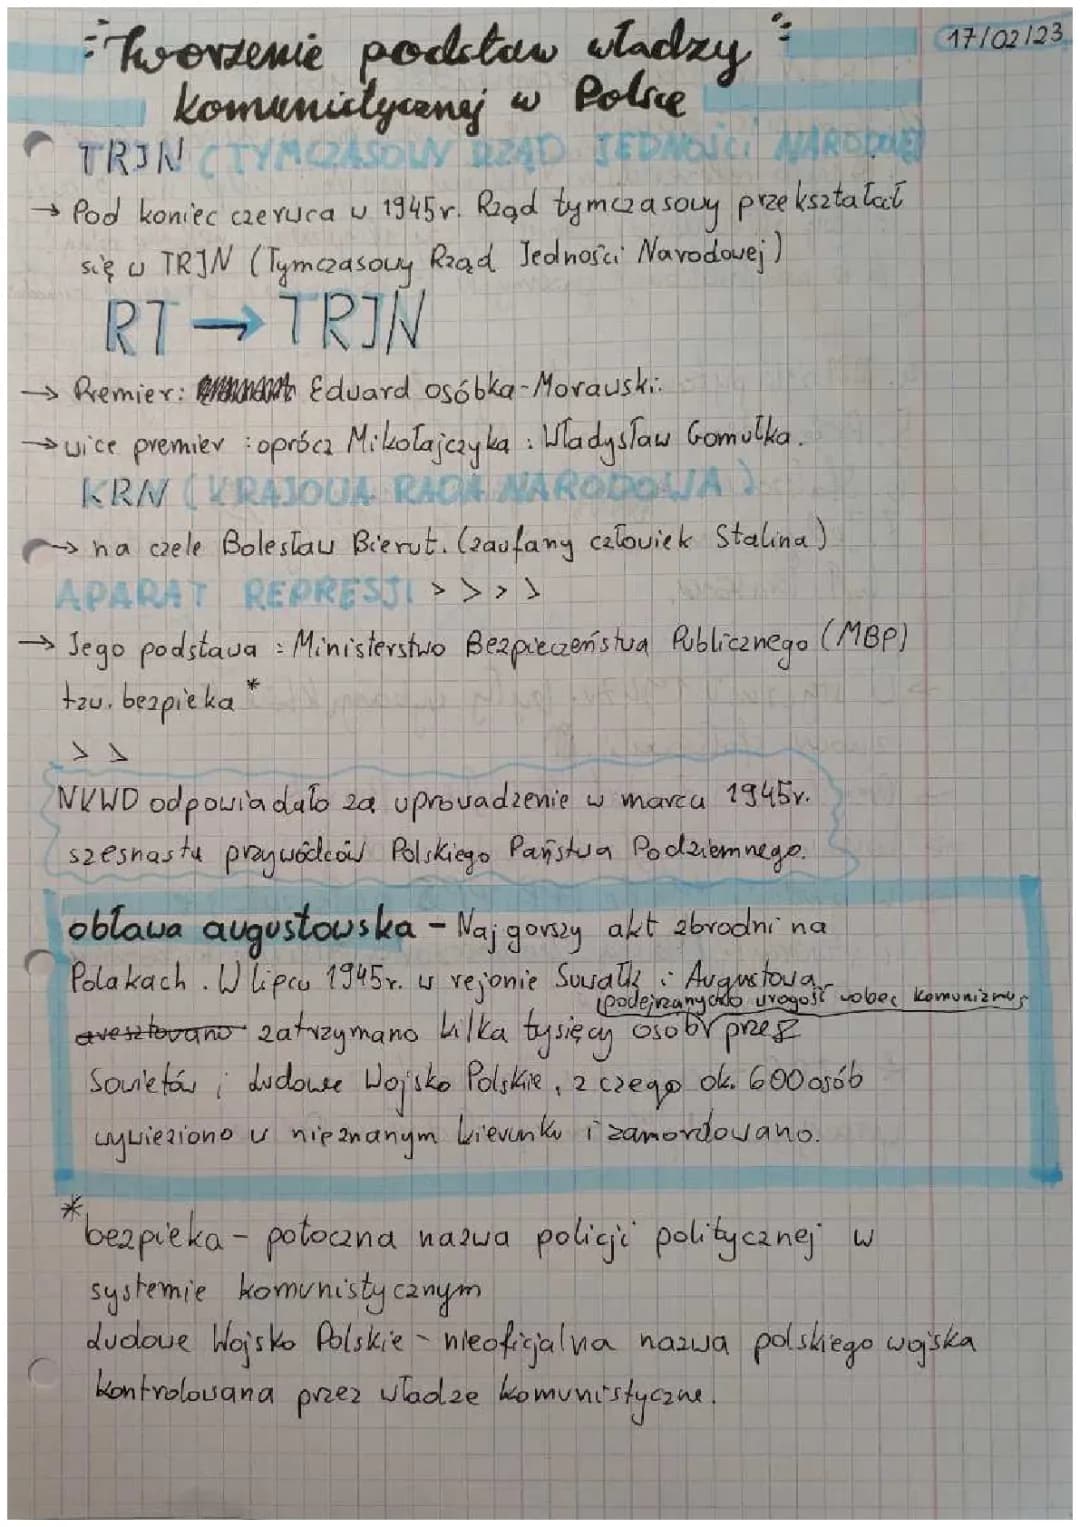 "Tworzenie podstaw władzy" 17/02/23
komunistycznej w Polsce
TRJN (TYMCZASOWY RZĄD JEDNOŚCI NARODOWEJ)
→ Pod koniec czerwca w 1945r. Rząd tymczasowy przekształcił
się w TRJN (Tymczasowy Rząd Jedności Narodowej)
RT → TRJN
→ Premier: Edward osóbka-Morawski.
→ wice premier : oprócz Mikołajczyka : Władysław Gomułka.
KRN (KRAJOWA RADA NARODOWA)
→ na czele Bolesław Bierut. (zaufany człowiek Stalina)
APARAT REPRESJI > > > >
→ Jego podstawa : Ministerstwo Bezpieczeństwa Publicznego (MBP)
tzw. bezpieka *
> >
NKWD odpowiadało za uprowadzenie w marcu 1945r.
szesnastu przywódców Polskiego Państwa Podziemnego.
obława augustowska – Najgorszy akt zbrodni na
Polakach. W lipcu 1945r. w rejonie Suwałk i Augustowa
(podejrzanych o wrogość wobec komunizmu)
aresztowano zatrzymano kilka tysięcy osób przez
Sowietów i Ludowe Wojsko Polskie, z czego ok. 600 osób
wywieziono w nieznanym kierunku i zamordowano.
* bezpieka – potoczna nazwa policji politycznej w
systemie komunistycznym
Ludowe Wojsko Polskie – nieoficjalna nazwa polskiego wojska
kontrolowana przez władze komunistyczne.